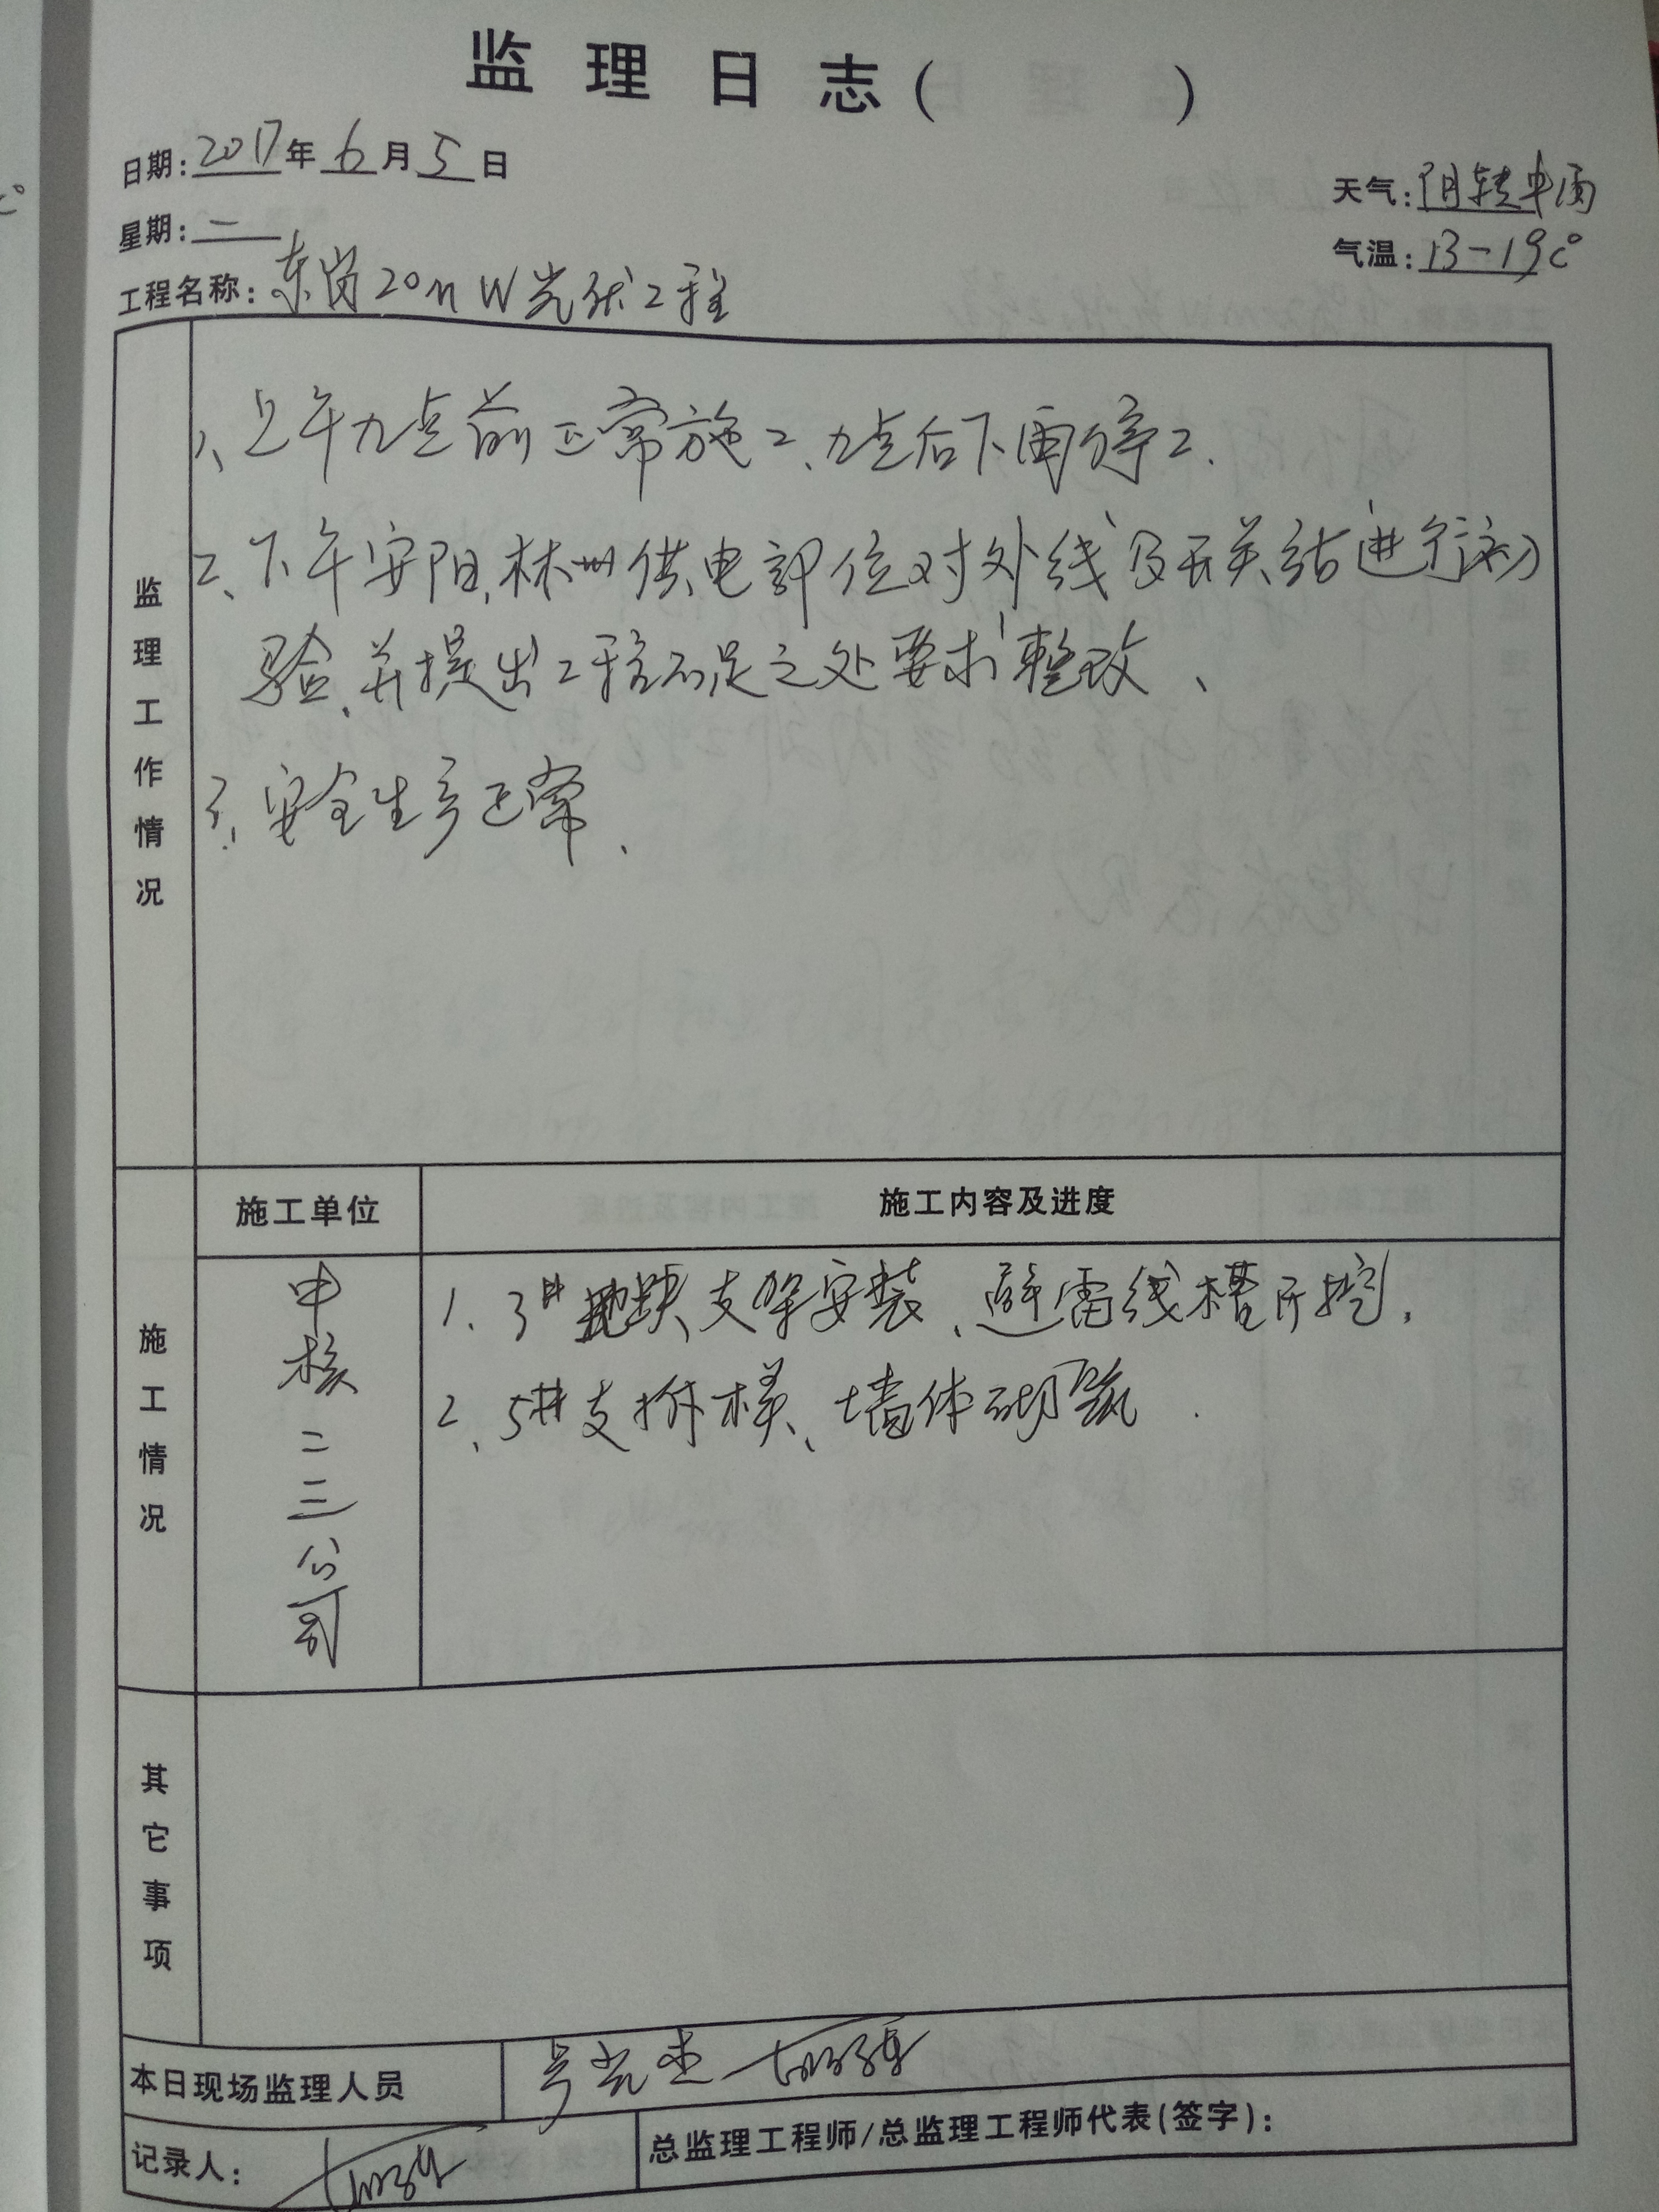 监理日志( )
日期:2017年6月5日
天气:阴转中雨
星期:二
气温:13-19c°
工程名称:东岗20mW光伏工程
监理工作情况
1、上午九点前正常施工、九点后下雨停工.
2、下午安阳、林州供电部位对外线及开关站进行初
验、并提出工程不足之处要求整改、
3、安全生产正常、
施工情况
施工单位
施工内容及进度
中核二三公司
1、3#地块支架安装、避雷线槽开挖,
2、5#支拆模、墙体砌筑.
其它事项
本日现场监理人员
记录人:
总监理工程师/总监理工程师代表(签字):